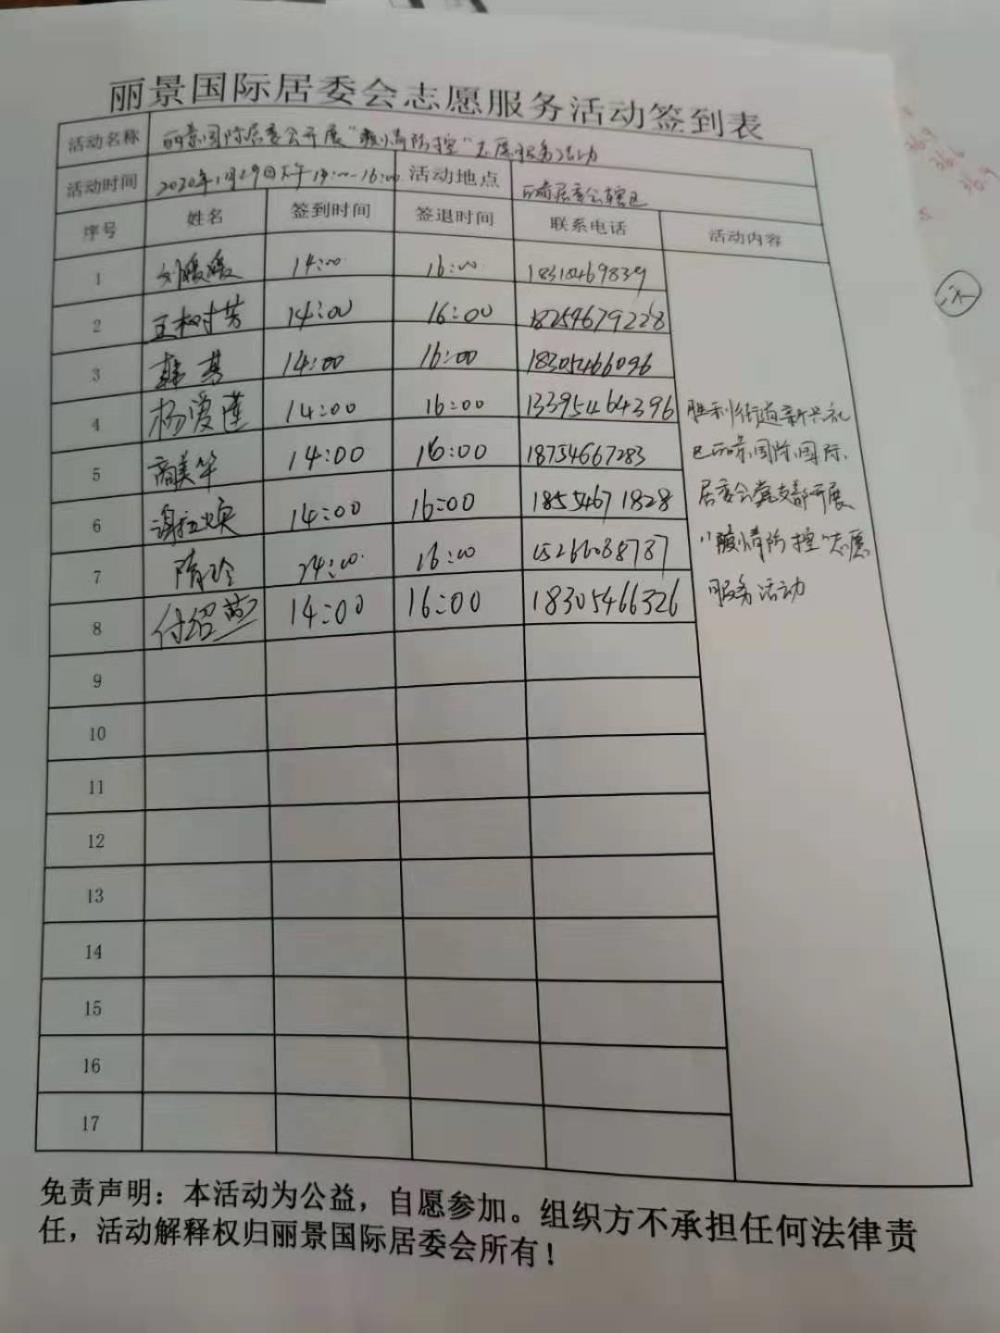 丽景国际居委会志愿服务活动签到表
活动名称 丽景国际居委会开展“疫情防控”志愿服务活动
活动时间 2020年1月29日下午14:00-16:00 活动地点 丽景居委会辖区
序号 姓名 签到时间 签退时间 联系电话 活动内容
1 刘媛媛 14:00 16:00
2 王树芳 14:00 16:00 18254679228
3 14:00 16:00 18305466096
4 杨爱莲 14:00 16:00 13395464396 胜利街道新兴社
5 商美华 14:00 16:00 18754667283 区丽景国际国际
6 14:00 16:00 18554671828 居委会党支部开展
7 隋玲 14:00 16:00 15266038787 “疫情防控”志愿
8 付绍燕 14:00 16:00 18305466326 服务活动
9
10
11
12
13
14
15
16
17
免责声明：本活动为公益，自愿参加。组织方不承担任何法律责
任，活动解释权归丽景国际居委会所有！